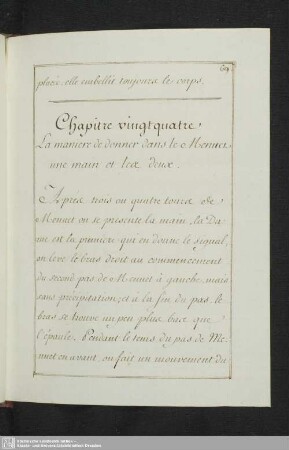 69
plusé, elle embellit toujours le corps.
Chapitre vingtquatre
La maniere de donner dans le Menuet
une main et les deux.
Apres trois ou quatre tours de
Menuet on se presente la main, la Da-
me est la premiere qui en donne le signal,
on leve le bras droit au commencement
du second pas de Menuet à gauche, mais
sans précipitation; et à la fin du pas, le
bras se trouve un peu plus bas que
l'épaule. Pendant le tems du pas de Me-
nuet en avant, on fait un mouvement du